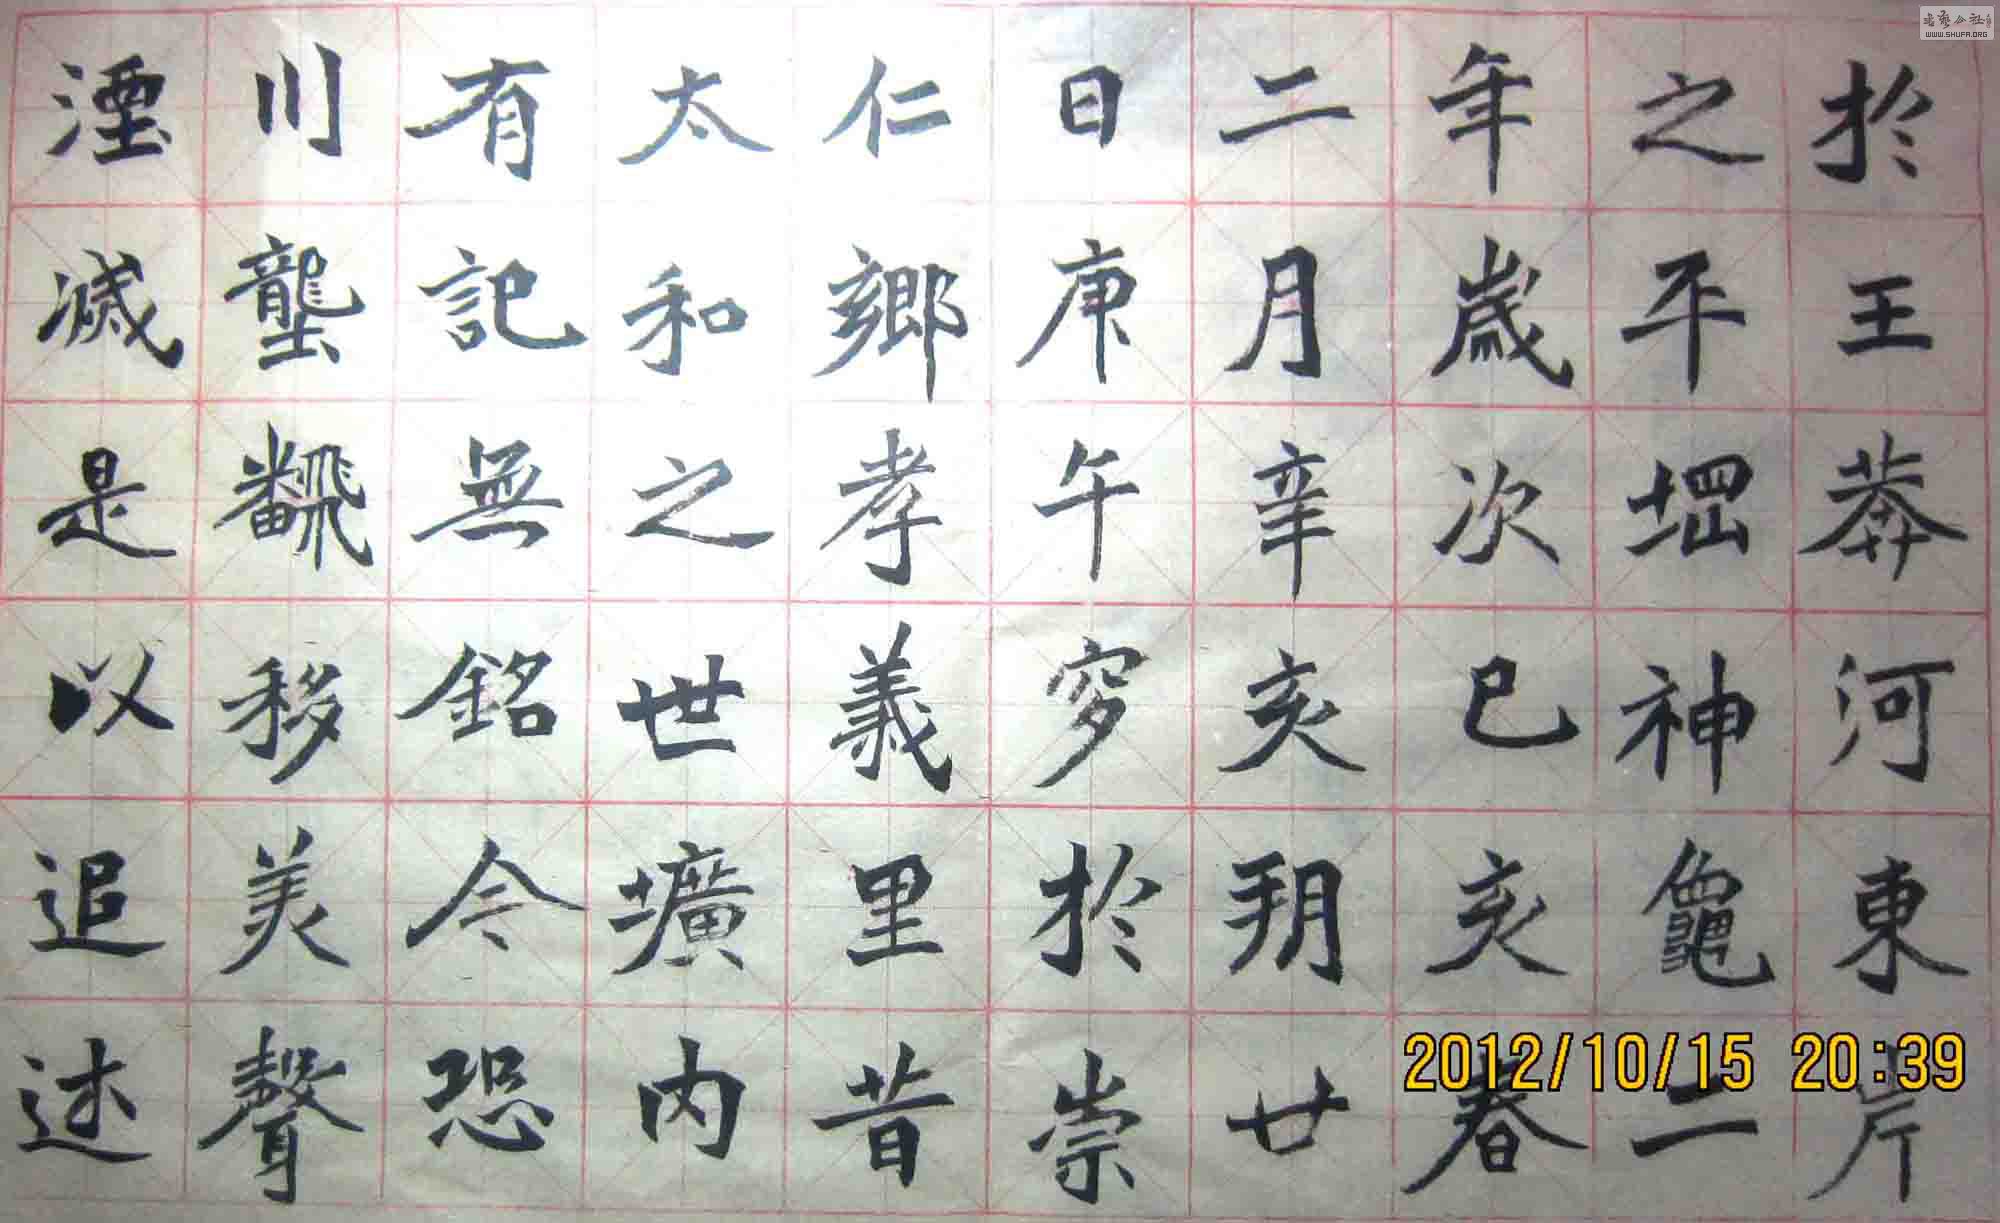 於王莽河東岸
之平堽神龜二
年歲次己亥春
二月辛亥朔廿
日庚午穸於崇
仁鄉孝義里昔
太和之世壙內
有記無銘今恐
川壟飜移美聲
湮滅是以追述
2012/10/15 20:39
WWW.SHUFA.ORG